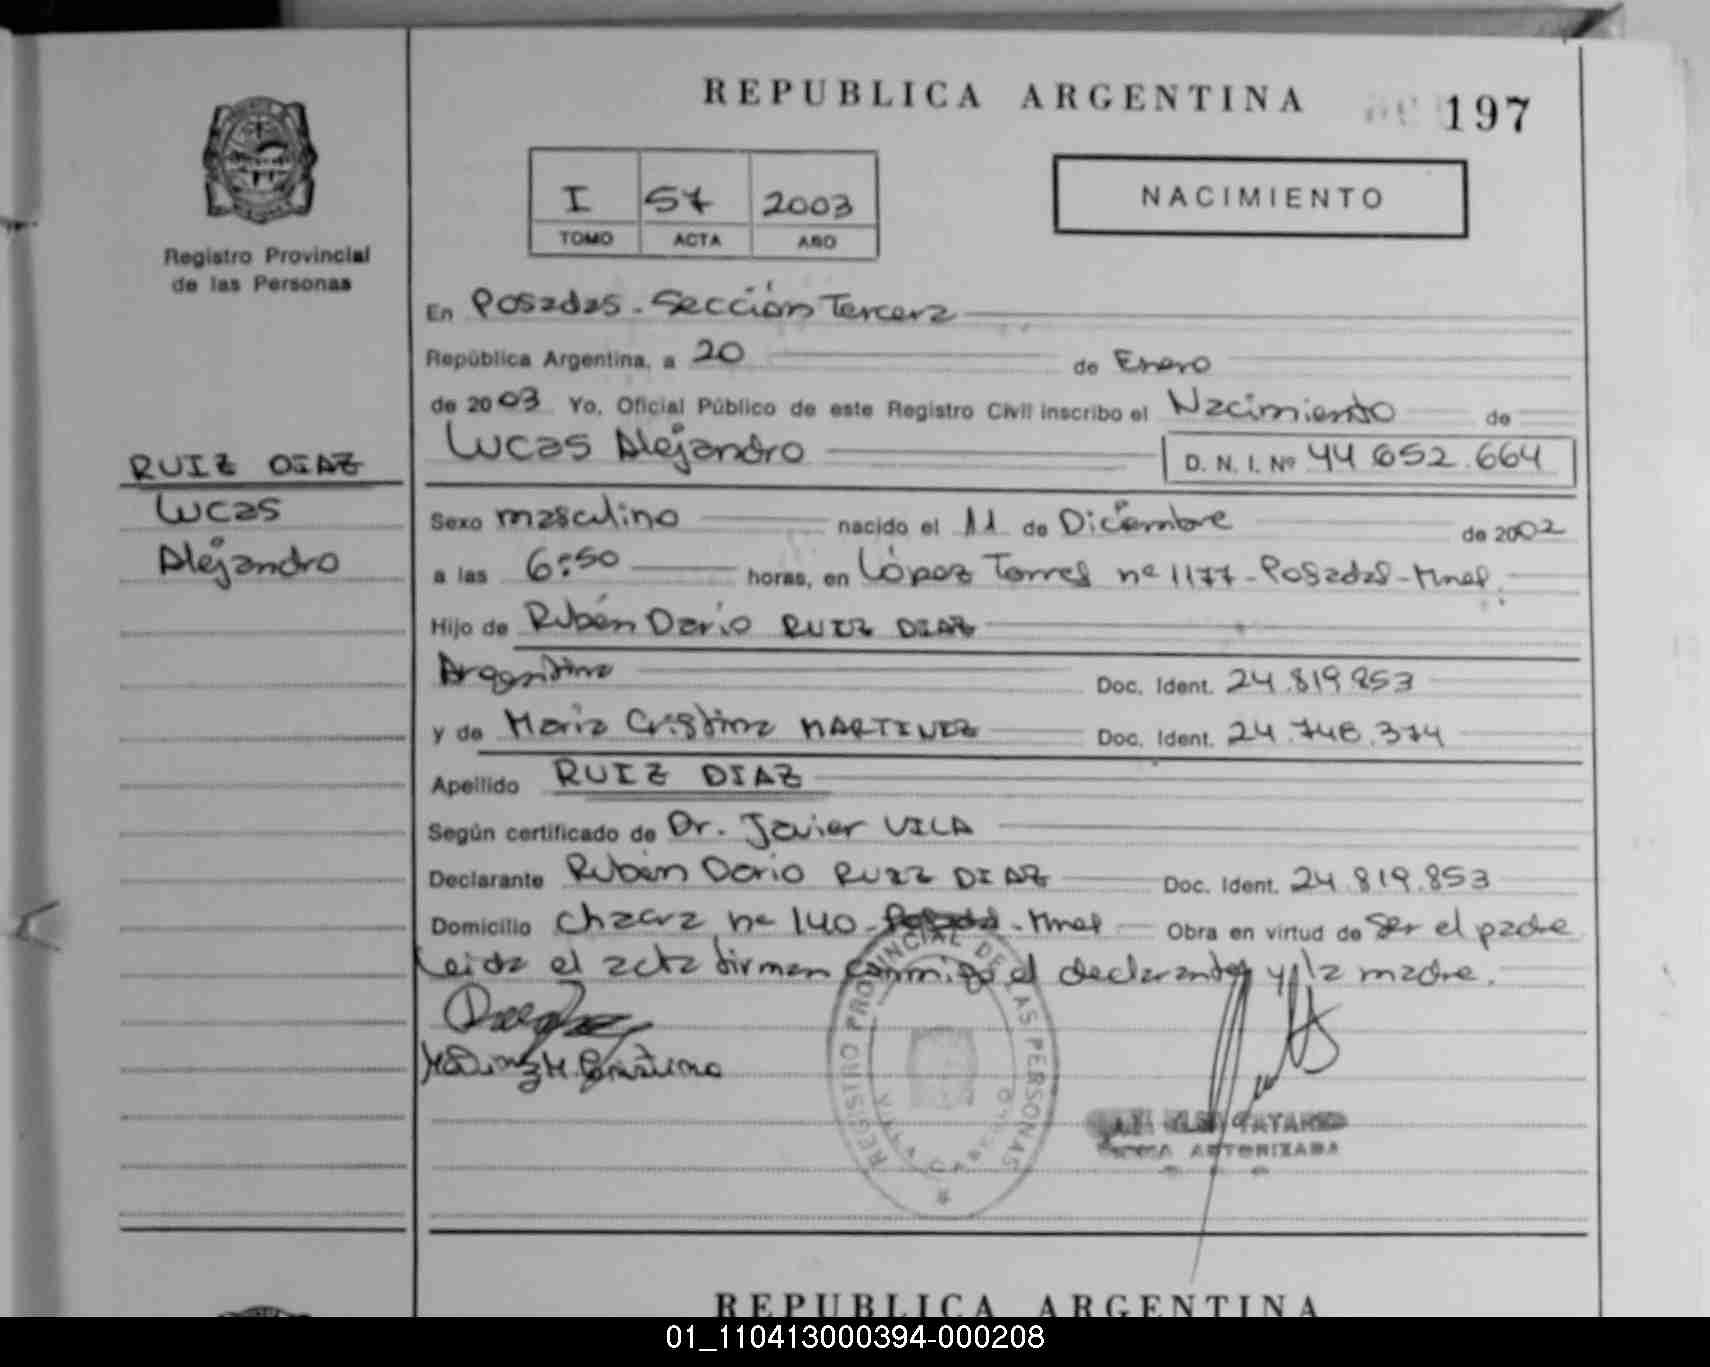 REPUBLICA ARGENTINA
197
I 57 2003
TOMO ACTA AÑO
NACIMIENTO
Registro Provincial
de las Personas
En Posadas - Sección Tercera
República Argentina, a 20 de Enero
de 2003 Yo, Oficial Público de este Registro Civil inscribo el Nacimiento de
Lucas Alejandro D. N. I. Nº 44 652.664
RUIZ DIAZ
Lucas
Alejandro
Sexo masculino nacido el 11 de Diciembre de 2002
a las 6:50 horas, en López Torres nº 1177 - Posadas - Mnes.
Hijo de Rubén Dario RUIZ DIAZ
Argentina Doc. Ident. 24.819.853
y de Maria Cristina MARTINEZ Doc. Ident. 24.746.374
Apellido RUIZ DIAZ
Según certificado de Dr. Javier VILA
Declarante Rubén Dario RUIZ DIAZ Doc. Ident. 24.819.853
Domicilio Chacra nº 140 - Posadas - Mnes Obra en virtud de ser el padre
Leida el acta firman conmigo el declarante y la madre.
REGISTRO PROVINCIAL DE LAS PERSONAS
AUTORIZADA
REPUBLICA ARGENTINA
01_110413000394-000208